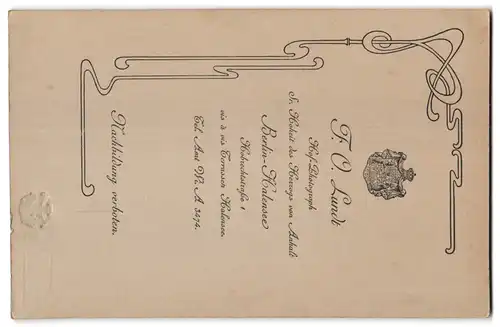 F. O. Lundt
Hof-Photograph
Sr. Hoheit des Herzogs von Anhalt
Berlin-Halensee
Hobrechtstraße 1
vis à vis Terrassen Halensee.
Tel. Amt Wi. A. 3474.
Nachbildung verboten.